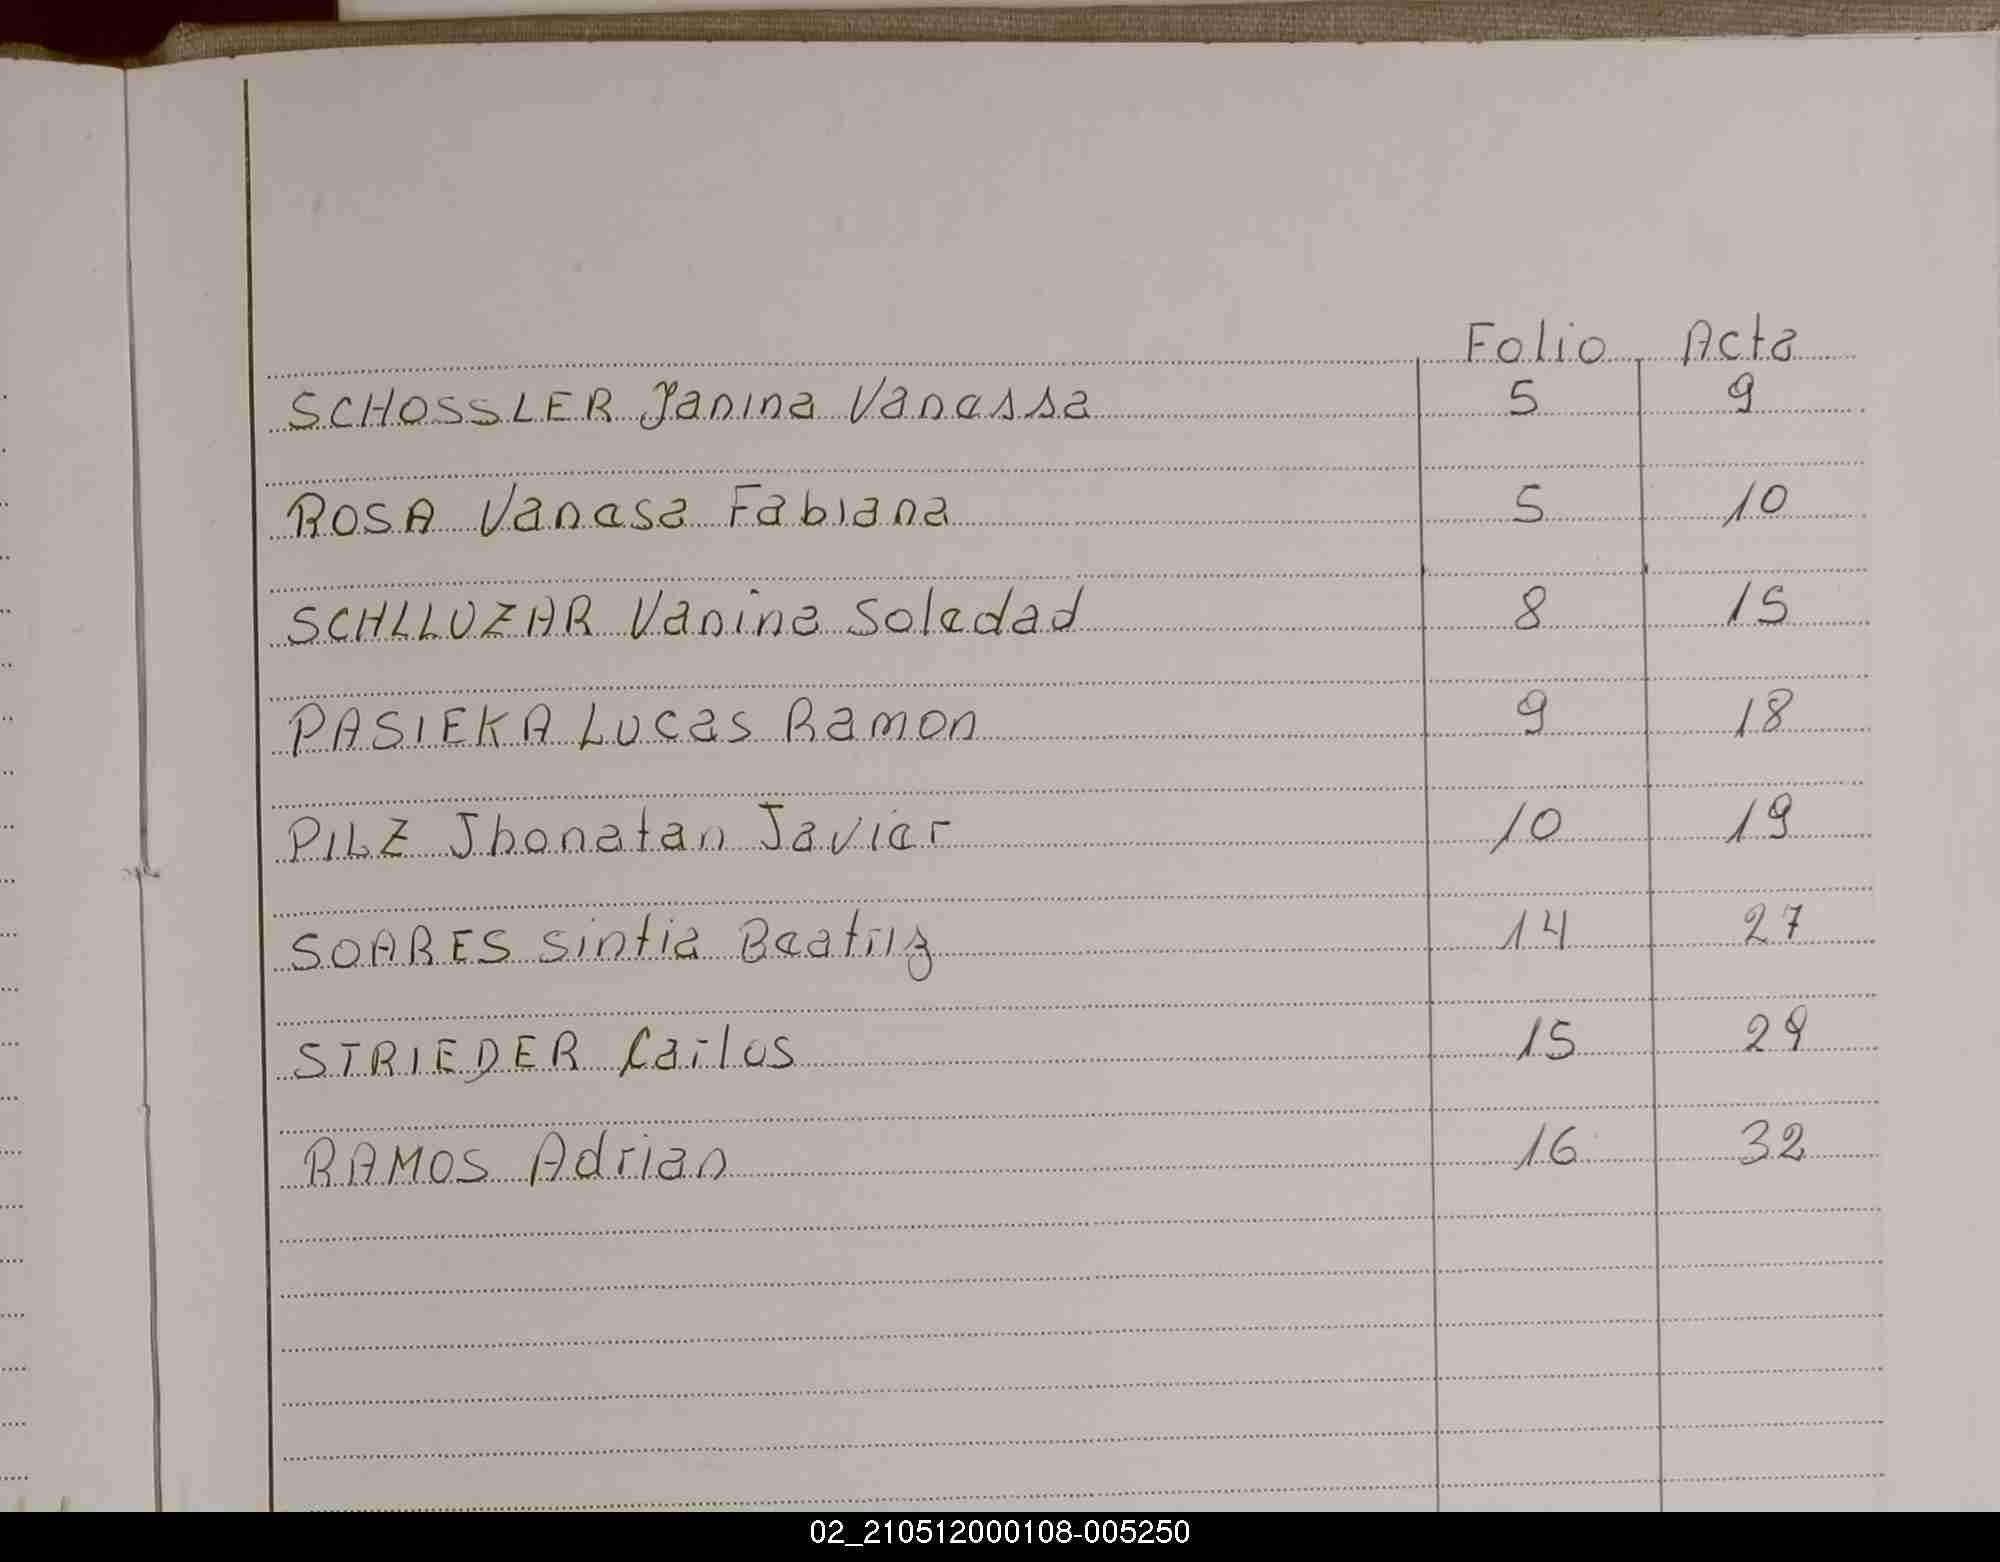 Folio Acta
SCHOSSLER Janina Vanessa 5 9
ROSA Vanesa Fabiana 5 10
SCHLLUZAR Vanina Soledad 8 15
PASIEKA Lucas Ramon 9 18
PILZ Jhonatan Javier 10 19
SOARES Sintia Beatriz 14 27
STRIEDER Carlos 15 29
RAMOS Adrian 16 32
02_210512000108-005250